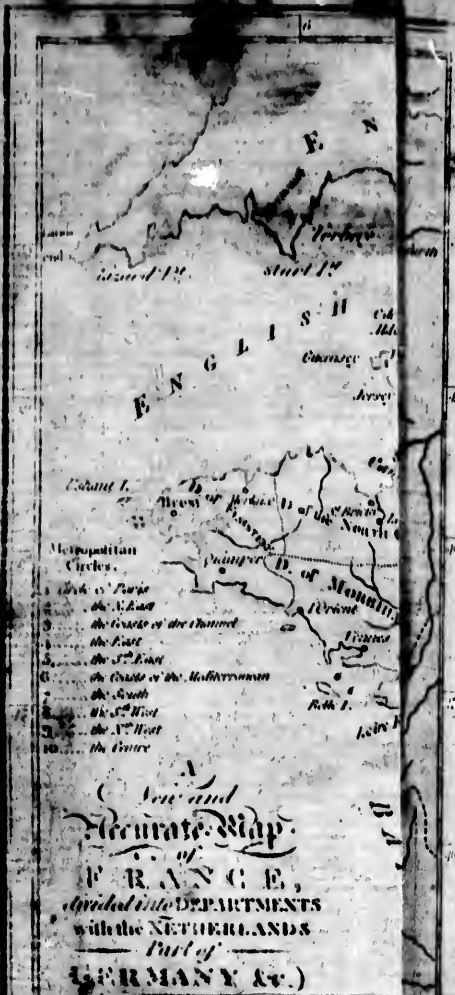 6
E N
Torbay
Land's
end
Lizard Pt.
Start Pt.
ENGLISH
Guernsey
Jersey
Ushant I.
Brest
D. of
D. of the North
St Brieux
Quimper
D. of MORBI
l'Orient
Vannes
Belle I.
BA
Metropolitan
Circles.
1 Circle of Paris
2 the N. East
3 the Coasts of the Channel
4 the East
5 the Sth East
6 the Coasts of the Mediterranean
7 the South
8 the Sth West
9 the Nth West
10 the Centre
A
New and
Accurate Map
of
FRANCE,
divided into DEPARTMENTS
with the NETHERLANDS
Part of
GERMANY &c.)